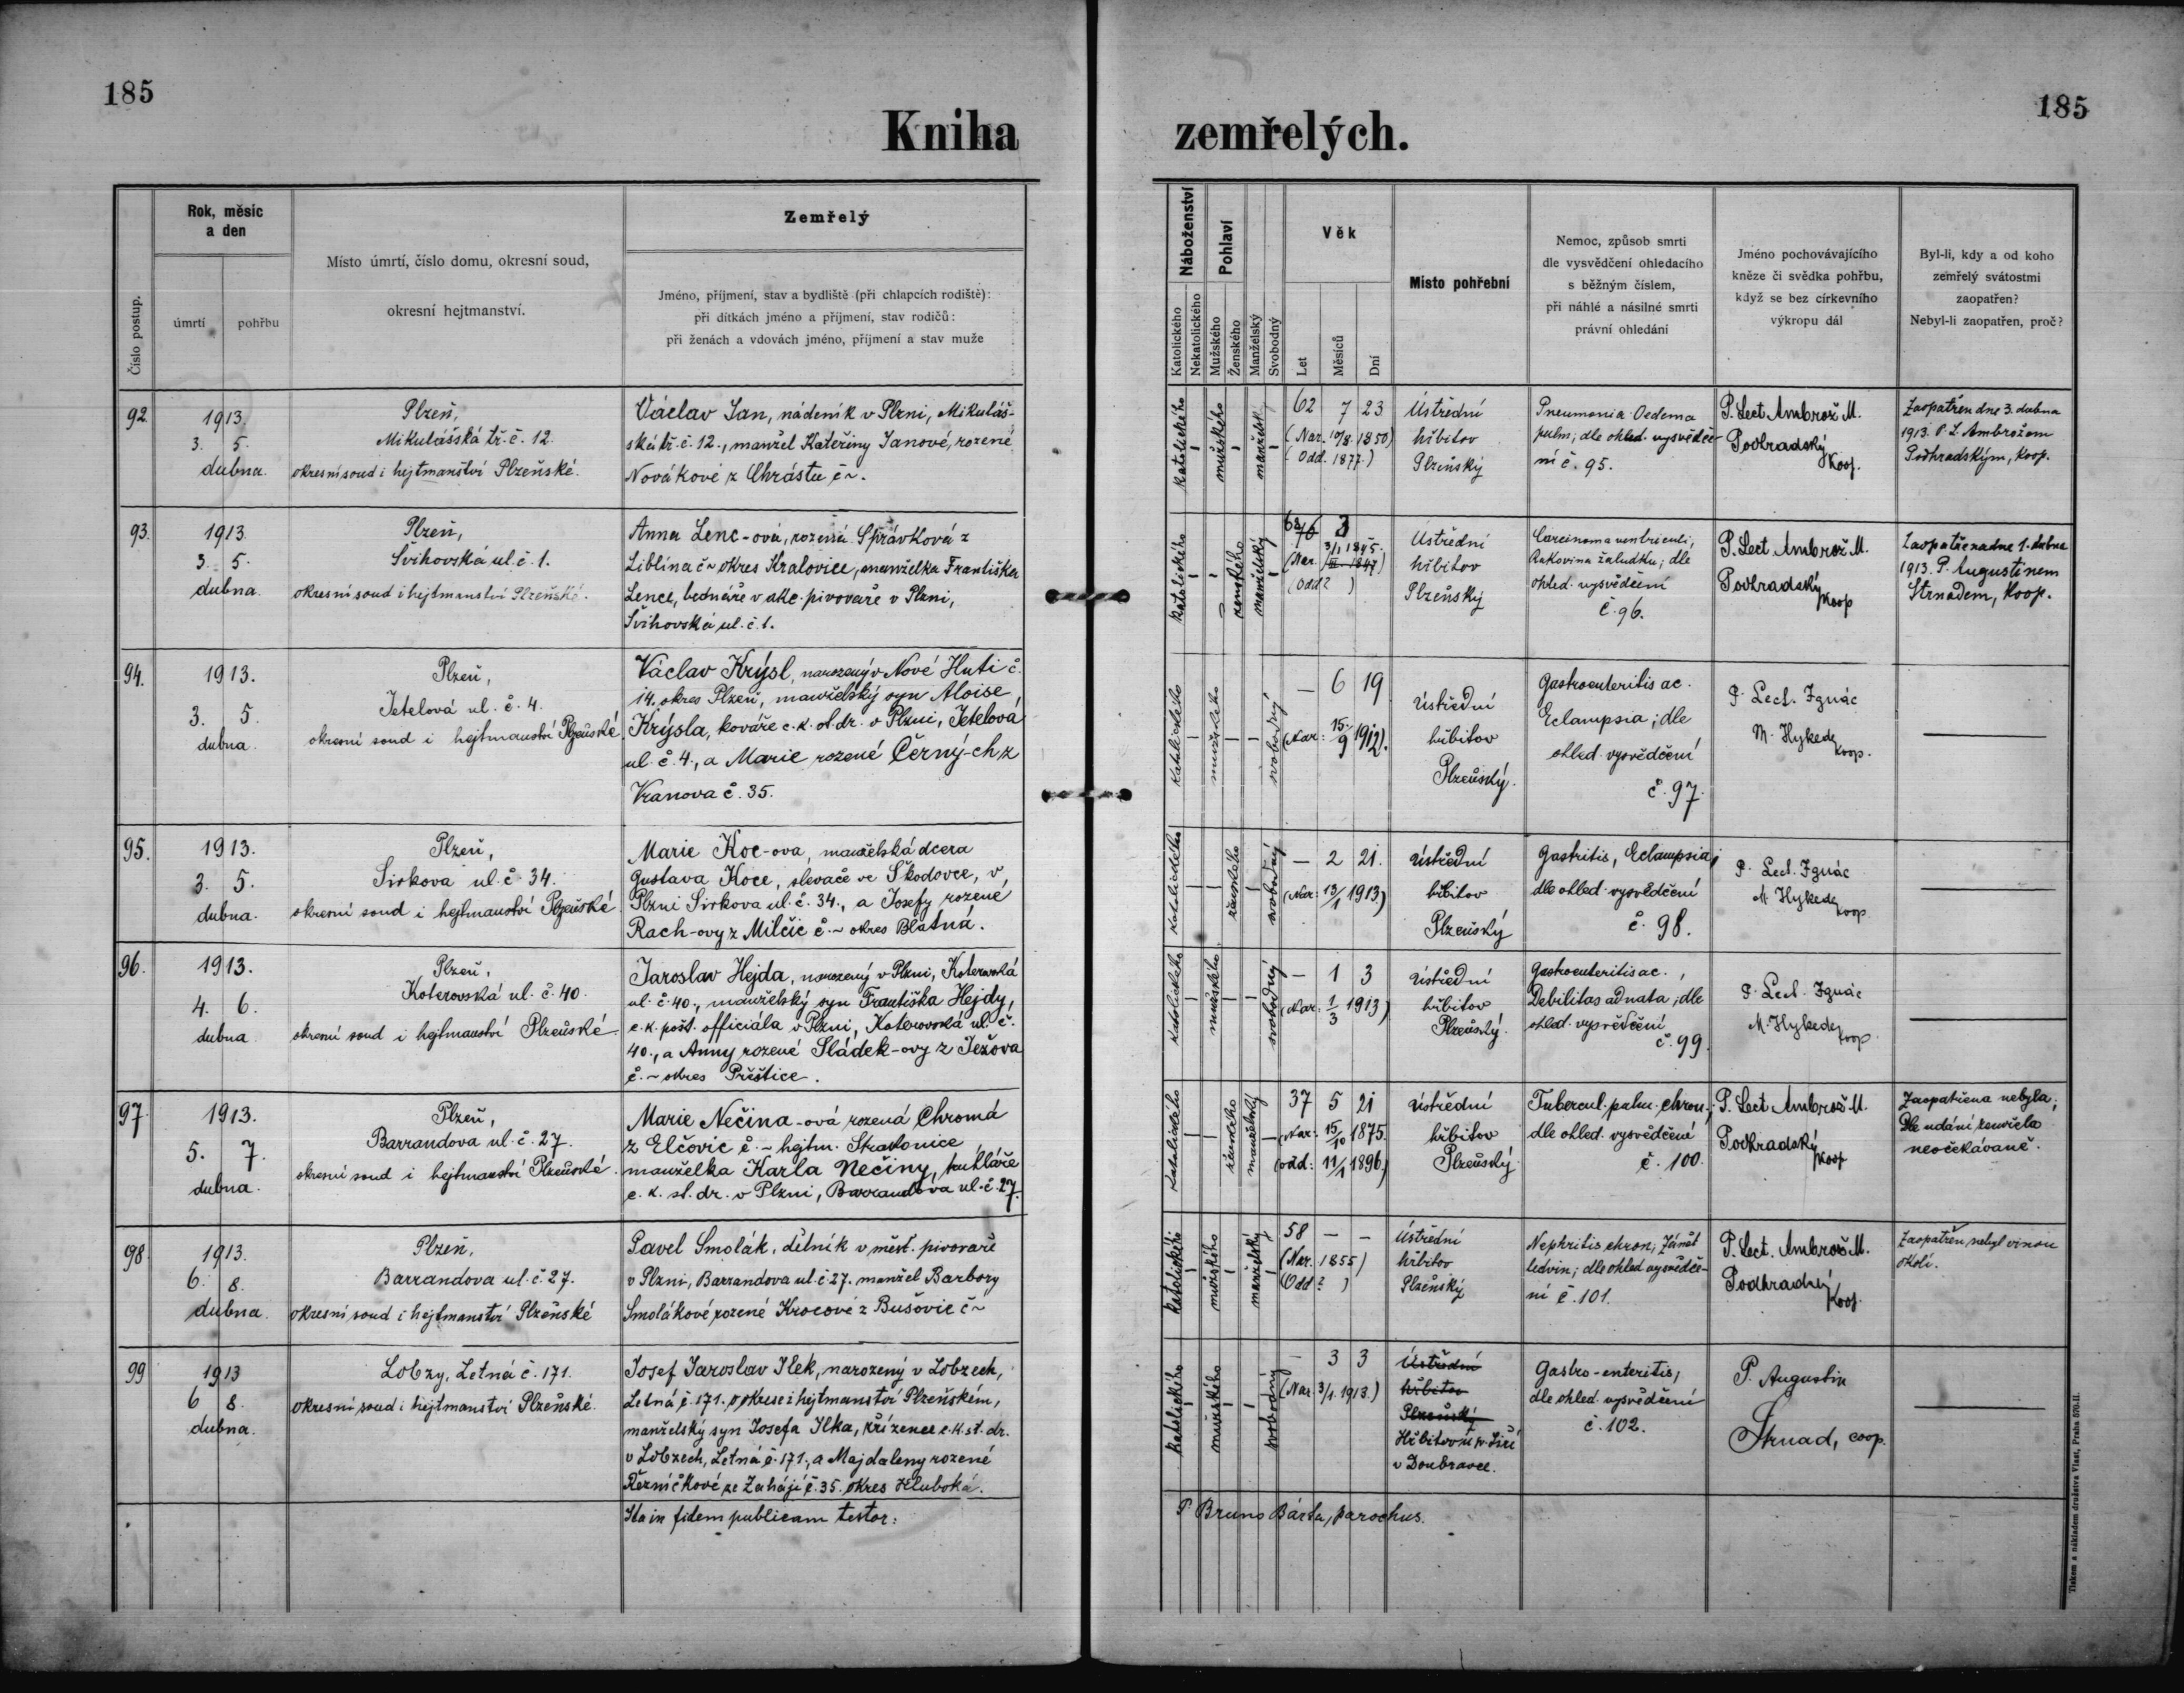 185
185
Kniha zemřelých.
Číslo postup.
Rok, měsíc
a den
úmrtí
pohřbu
Místo úmrtí, číslo domu, okresní soud,
okresní hejtmanství.
Zemřelý
Jméno, příjmení, stav a bydliště (při chlapcích rodiště):
při dítkách jméno a příjmení, stav rodičů:
při ženách a vdovách jméno, příjmení a stav muže
Náboženství
Katolického
Nekatolického
Pohlaví
Mužského
Ženského
Manželský
Svobodný
Věk
Let
Měsíců
Dní
Místo pohřební
Nemoc, způsob smrti
dle vysvědčení ohledacího
s běžným číslem,
při náhlé a násilné smrti
právní ohledání
Jméno pochovávajícího
kněze či svědka pohřbu,
když se bez církevního
výkropu dál
Byl-li, kdy a od koho
zemřelý svátostmi
zaopatřen?
Nebyl-li zaopatřen, proč?
92.
1913.
3. 5.
dubna.
Plzeň,
Mikulášská tř. č. 12.
okresní soud i hejtmanství Plzeňské.
Václav Jan, nádeník v Plzni, Mikuláš-
ská tř. č. 12., manžel Kateřiny Janové, rozené
Novákové z Chrástu č ~.
katolického
mužského
manželský
62 7 23
(Nar. 10/8. 1850)
(Odd. 1877.)
Ústřední
hřbitov
Plzeňský
Pneumonia. Oedema
pulm; dle ohled. vysvědče-
ní č. 95.
P. Lect. Ambrož M.
Podhradský
Koop.
Zaopatřen dne 3. dubna
1913. P. L. Ambrožem
Podhradským, koop.
93.
1913.
3. 5.
dubna.
Plzeň,
Švihovská ul. č. 1.
okresní soud i hejtmanství Plzeňské.
Anna Lenc-ová, rozená Správková z
Liblína č ~ okres Kralovice, manželka Františka
Lence, bednáře v akc. pivovaře v Plzni,
Švihovská ul. č. 1.
katolického
ženského
manželský
68 3
(Nar. 3/1 1845.
1847)
(Odd ? )
Ústřední
hřbitov
Plzeňský
Carcinoma ventriculi,
Rakovina žaludku; dle
ohled. vysvědčení
č. 96.
P. Lect. Ambrož M.
Podhradský
Koop
Zaopatřena dne 1. dubna
1913. P. Augustinem
Strnadem, koop.
94.
1913.
3. 5.
dubna.
Plzeň,
Jetelová ul. č. 4.
okresní soud i hejtmanství Plzeňské
Václav Krýsl, narozený v Nové Huti č.
14. okres Plzeň, manželský syn Aloise
Krýsla, kováře c. k. st. dr. v Plzni, Jetelová
ul. č. 4., a Marie rozené Černý-ch z
Vranova č. 35.
katolického
mužského
svobodný
— 6 19
(Nar: 15./9 1912).
Ústřední
hřbitov
Plzeňský.
Gastroenteritis ac.
Eclampsia; dle
ohled. vysvědčení
č. 97.
P. Lect. Ignác
M. Hykede
koop.
95.
1913.
3. 5.
dubna.
Plzeň,
Sirkova ul. č. 34.
okresní soud i hejtmanství Plzeňské.
Marie Koc-ova, manželská dcera
Gustava Koce, slevače ve Škodovce, v
Plzni Sirkova ul. č. 34., a Josefy rozené
Rach-ovy z Milčic č. ~ okres Blatná.
katolického
ženského
svobodný
— 2 21.
(Nar: 13/1 1913)
Ústřední
hřbitov
Plzeňský
Gastritis, Eclampsia;
dle ohled. vysvědčení
č. 98.
P. Lect. Ignác
M. Hykede
koop
96.
1913.
4. 6.
dubna
Plzeň,
Koterovská ul. č. 40.
okresní soud i hejtmanství Plzeňské
Jaroslav Hejda, narozený v Plzni, Koterovská
ul. č. 40., manželský syn Františka Hejdy,
c. k. pošt. officiála v Plzni, Koterovská ul. č.
40., a Anny rozené Sládek-ovy z Ježova
č. ~ okres Přeštice.
katolického
mužského
svobodný
— 1 3
(Nar: 1/3 1913)
Ústřední
hřbitov
Plzeňský.
Gastroenteritis ac.,
Debilitas adnata; dle
ohled. vysvědčení
č. 99.
P. Lect. Ignác
M. Hykede
koop
97.
1913.
5. 7.
dubna.
Plzeň,
Barrandova ul. č. 27.
okresní soud i hejtmanství Plzeňské.
Marie Nečina-ová rozená Chromá
z Elčovic č. ~ hejtm. Strakonice,
manželka Karla Nečiny, truhláře
c. k. st. dr. v Plzni, Barrandova ul. č. 27.
katolického
ženského
manželský
37 5 21
(Nar: 15/10 1875.
(odd: 11/1 1896)
Ústřední
hřbitov
Plzeňský.
Tubercul. pulm. chron.;
dle ohled. vysvědčení
č. 100.
P. Lect. Ambrož M.
Podhradský
Koop
Zaopatřena nebyla;
Dle udání zemřela
neočekávaně.
98.
1913.
6. 8.
dubna.
Plzeň,
Barrandova ul. č. 27.
okresní soud i hejtmanství Plzeňské
Pavel Smolák, dělník v měšť. pivovaře
v Plzni, Barrandova ul. č. 27. manžel Barbory
Smolákové rozené Krocové z Bušovic č ~
katolického
mužského
manželský
58 — —
(Nar. 1855)
(Odd ? )
Ústřední
hřbitov
Plzeňský
Nephritis chron; Zánět
ledvin; dle ohled vysvědče-
ní č. 101.
P. Lect. Ambrož M.
Podhradský
Koop.
Zaopatřen nebyl vinou
okolí.
99
1913
6 8.
dubna.
Lobzy, Letná č. 171.
okresní soud i hejtmanství Plzeňské.
Josef Jaroslav Ilek, narozený v Lobzech,
Letná č. 171. v okrese i hejtmanství Plzeňském,
manželský syn Josefa Ilka, křízence c. k. st. dr.
v Lobzech, Letná č. 171., a Majdaleny rozené
Řezníčkové ze Zahájí č. 35. okres Hluboká.
katolického
mužského
svobodný
— 3 3
(Nar. 3/1. 1913.)
Ústřední
hřbitov
Plzeňský
Hřbitov u sv. Jiří
v Doubravce.
Gastro-enteritis,
dle ohled. vysvědčení
č. 102.
P. Augustin
Strnad, coop.
Ita in fidem publicam testor:
P. Bruno Bárta, parochus.
Tiskem a nákladem družstva Vlast, Praha 570-II.